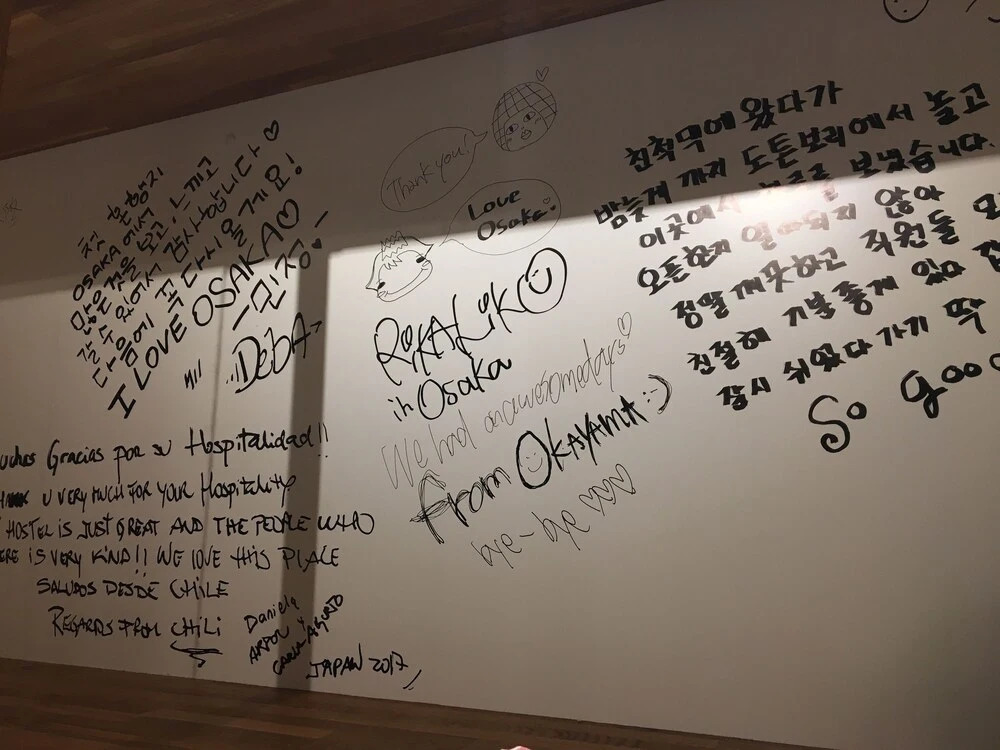 첫 여행지
OSAKA 에서
많은것을 보고, 느끼고
갈수 있어서 감사합니다 ♡
다음에 꼭 다시 올게요!
I LOVE OSAKA♡
-민정-
DEBA
Thank you!
Love
Osaka
RiKALiK
in Osaka
We had an awesome days♡
From OKAYAMA :)
bye-bye ♡♡♡
친척댁에 왔다가
밤늦게 까지 도톤보리에서 놀고
이곳에서 보냈습니다.
오픈한지 얼마되지 않아
정말 깨끗하고 직원들
친절해 기분좋게 있다
잠시 쉬었다 가기 딱
So good
Gracias por su Hospitalidad!!
U VERY MUCH FOR YOUR Hospitality
HOSTEL IS JUST GREAT AND THE PEOPLE WHO
IS VERY KIND!! WE LOVE THIS PLACE
SALUDOS DESDE CHILE
REGARDS FROM CHILI
Daniela
JAPAN 2017